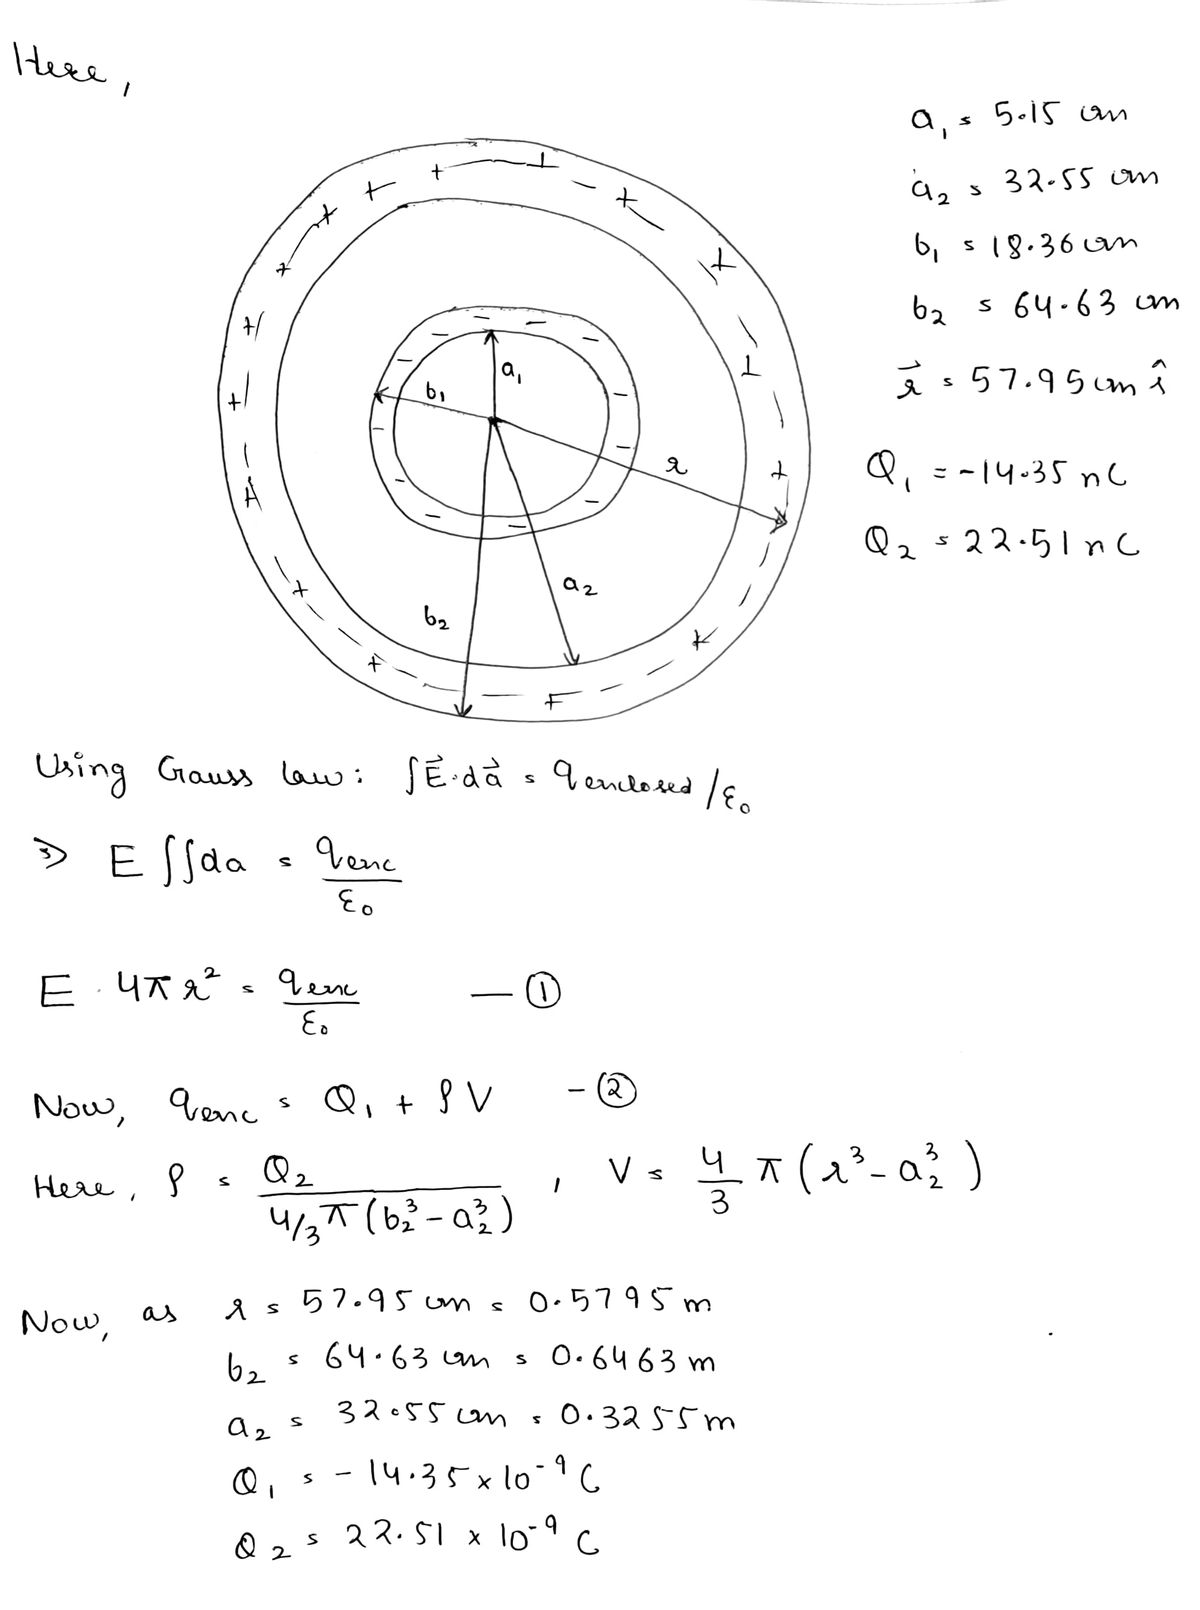 Here,
a₁ = 5.15 cm
a₂ = 32.55 cm
b₁ = 18.36 cm
b₂ = 64.63 cm
r⃗ = 57.95 cm r̂
Q₁ = -14.35 nC
Q₂ = 22.51 nC
a₁
b₁
r
a₂
b₂
Using Gauss law: ∫E⃗·da⃗ = q enclosed /ε₀
⇒ E ∫∫da = qenc/ε₀
E · 4πr² = qenc/ε₀ — ①
Now, qenc = Q₁ + ρV - ②
Here, ρ = Q₂ / (4/3 π (b₂³ - a₂³)) , V = 4/3 π (r³ - a₂³)
Now, as r = 57.95 cm = 0.5795 m
b₂ = 64.63 cm = 0.6463 m
a₂ = 32.55 cm = 0.3255 m
Q₁ = - 14.35 × 10⁻⁹ C
Q₂ = 22.51 × 10⁻⁹ C